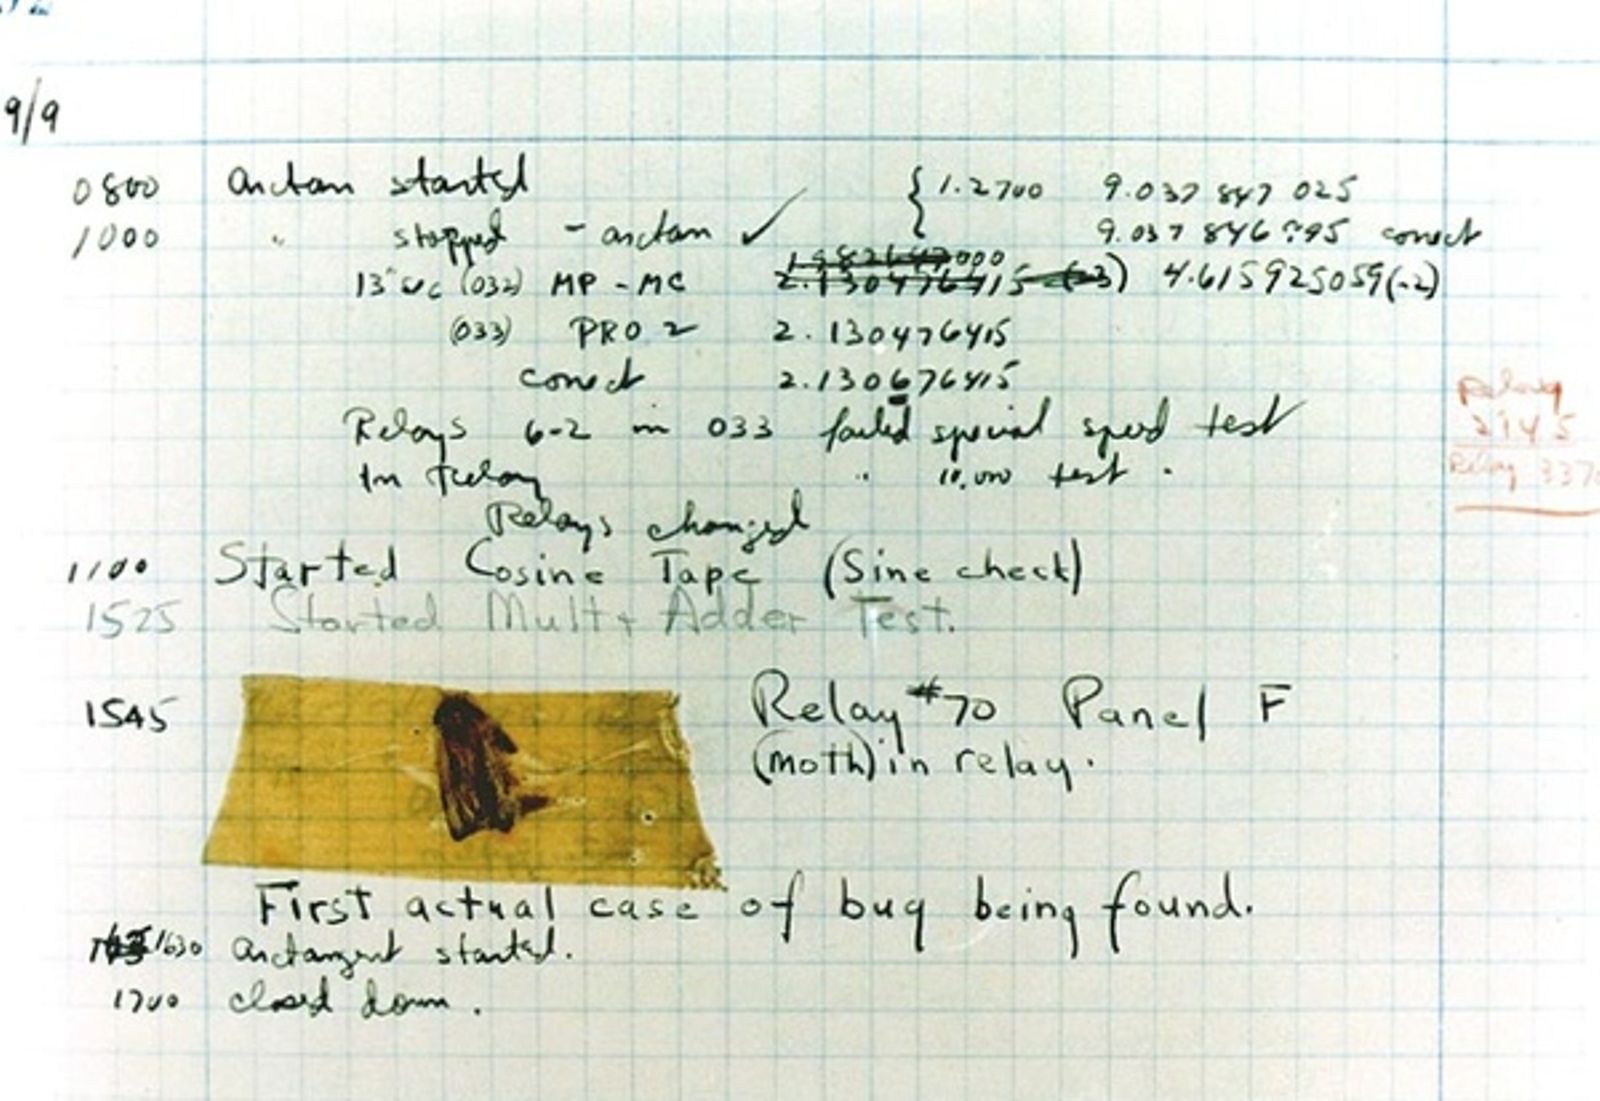 9/9
0800 arctan started { 1.2700 9.037 847 025
1000 " stopped - arctan ✓ 9.037 846 995 correct
13" uc (032) MP - MC 2.130476415 (-3) 4.615925059(-2)
(033) PRO 2 2.130476415
correct 2.130676415
Relays 6-2 in 033 failed special speed test
In Relay " 10,000 test .
Relays changed
1100 Started Cosine Tape (Sine check)
1525 Started Mult + Adder Test.
1545 Relay #70 Panel F
(moth) in relay.
First actual case of bug being found.
1630 arctangent started.
1700 closed down .
Relay
2145
Relay 3370